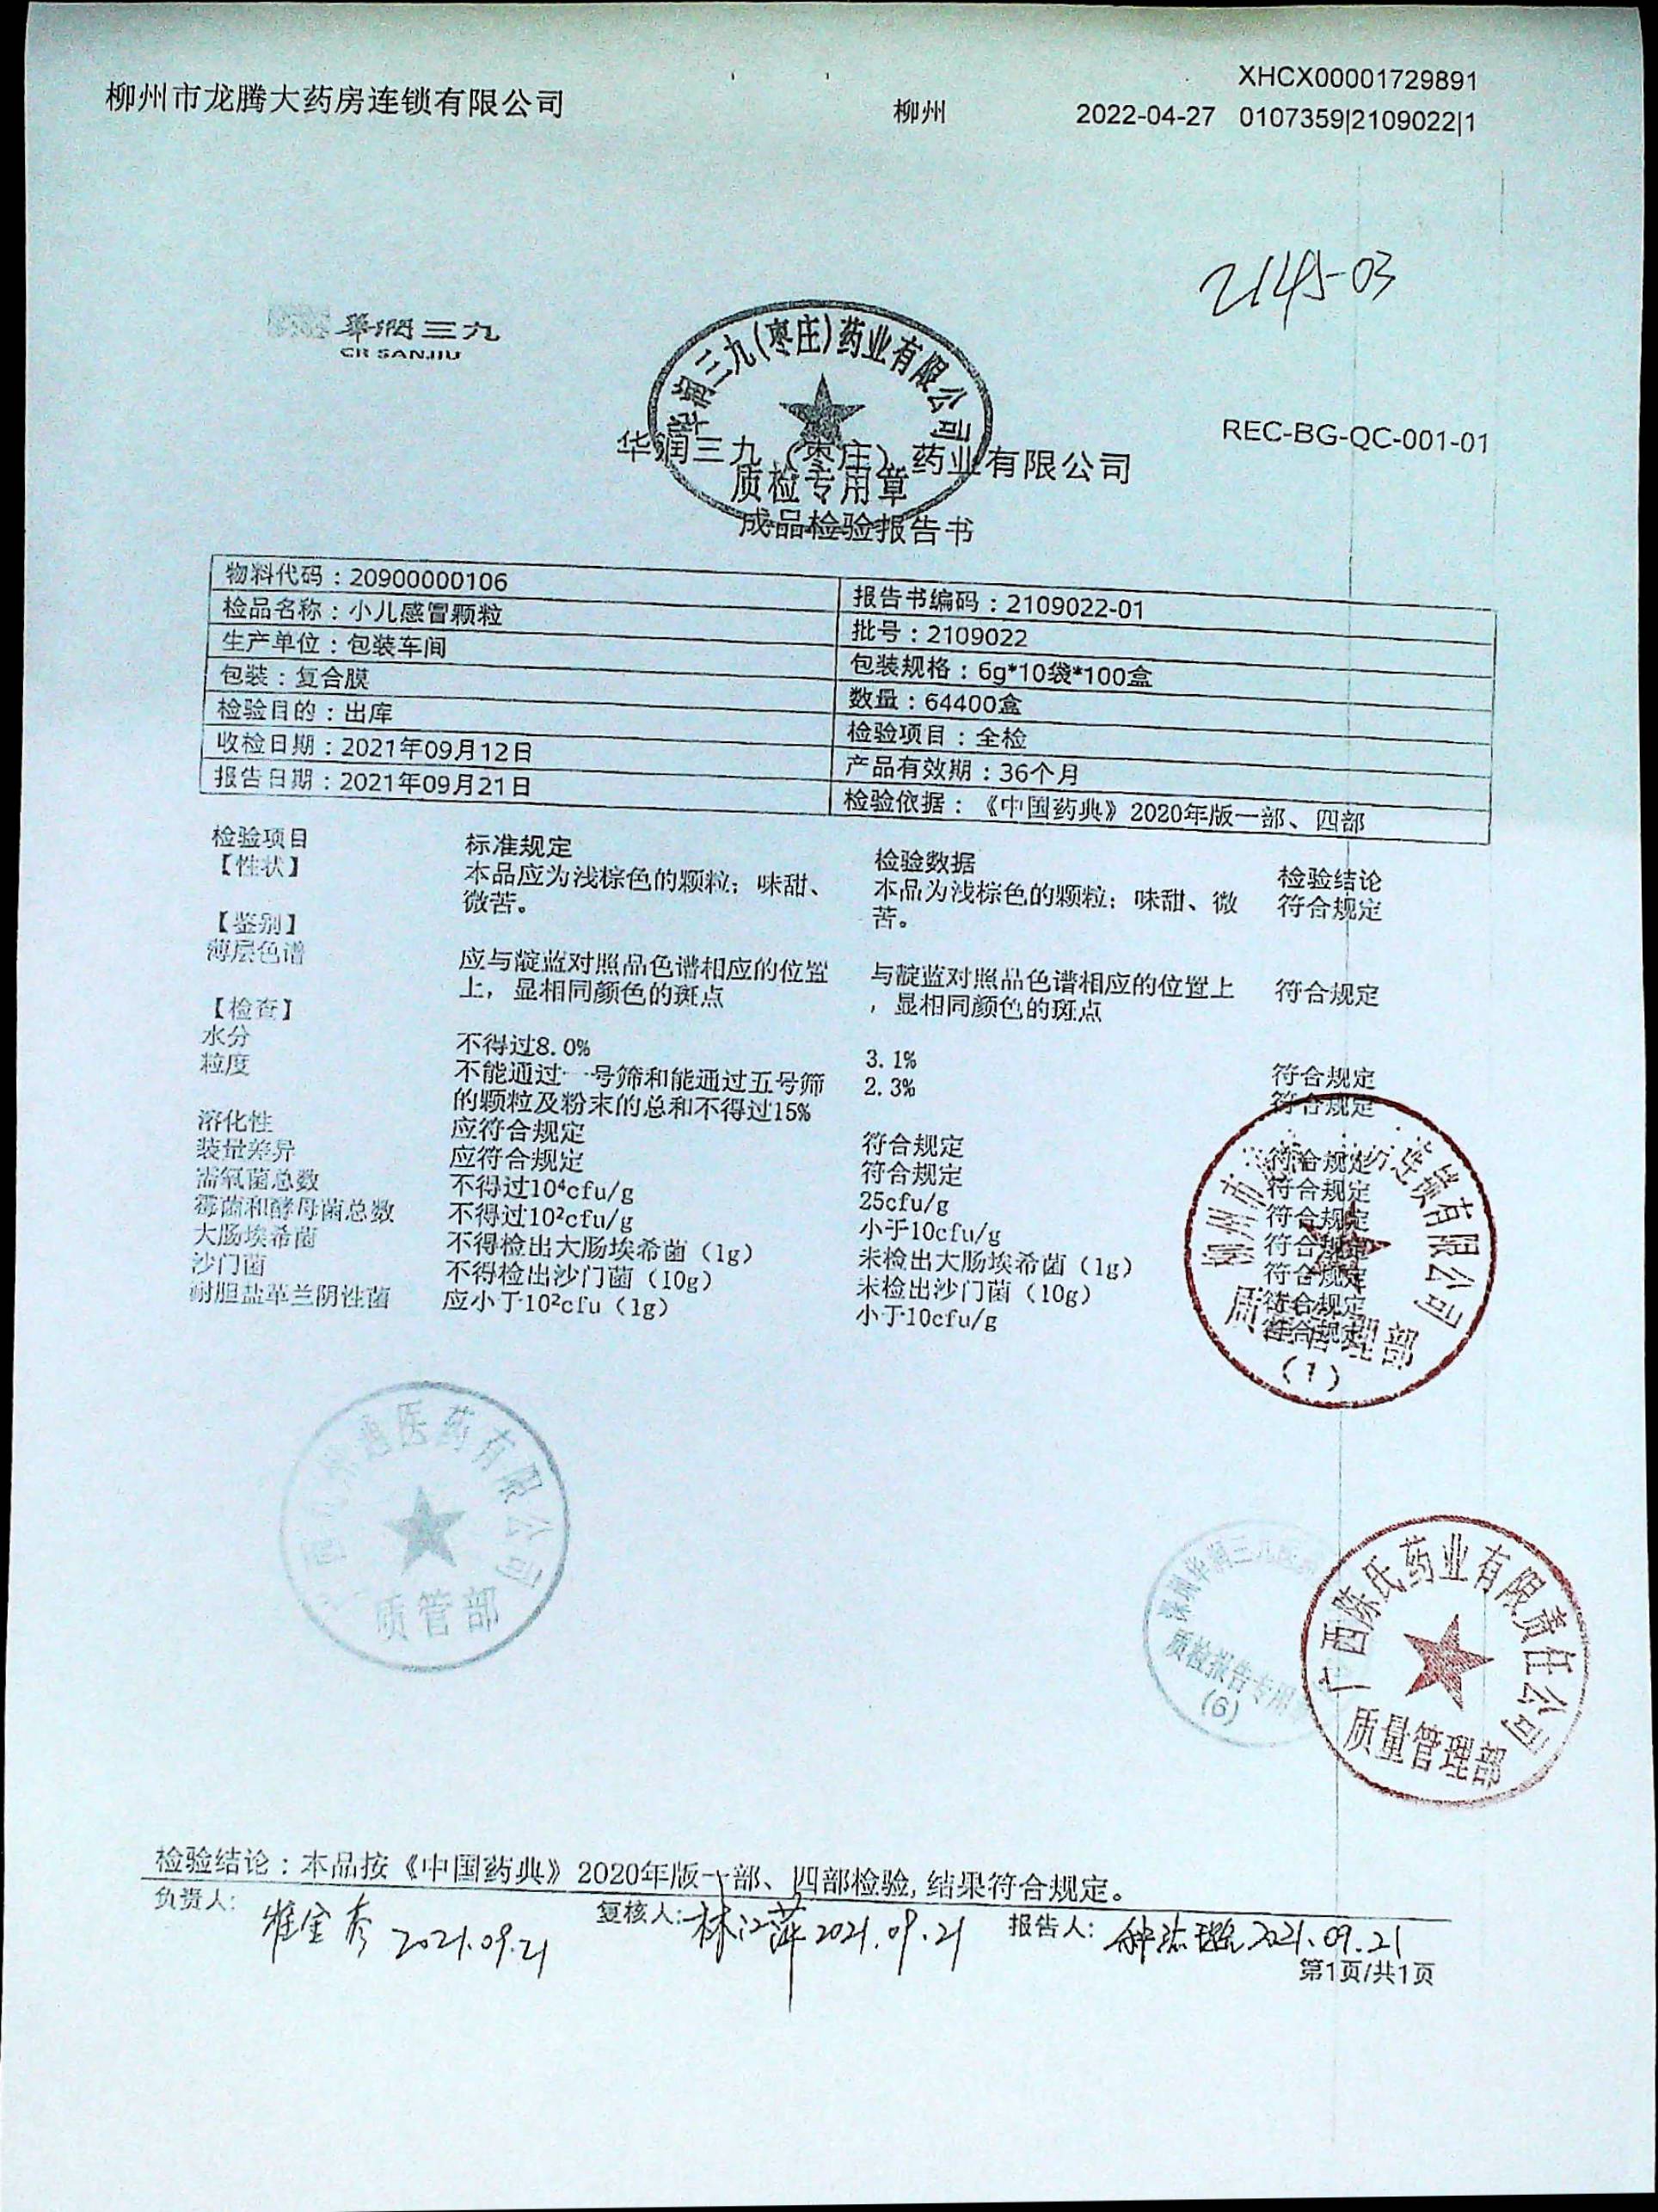 XHCX00001729891
柳州市龙腾大药房连锁有限公司 柳州 2022-04-27 0107359|2109022|1
2145-03
華潤三九
CR SANJIU
华润三九(枣庄)药业有限公司
质检专用章
REC-BG-QC-001-01
华润三九（枣庄）药业有限公司
成品检验报告书
物料代码：20900000106 报告书编码：2109022-01
检品名称：小儿感冒颗粒 批号：2109022
生产单位：包装车间 包装规格：6g*10袋*100盒
包装：复合膜 数量：64400盒
检验目的：出库 检验项目：全检
收检日期：2021年09月12日 产品有效期：36个月
报告日期：2021年09月21日 检验依据：《中国药典》2020年版一部、四部
检验项目 标准规定 检验数据 检验结论
【性状】 本品应为浅棕色的颗粒；味甜、 本品为浅棕色的颗粒；味甜、微 符合规定
微苦。 苦。
【鉴别】
薄层色谱 应与靛蓝对照品色谱相应的位置 与靛蓝对照品色谱相应的位置上 符合规定
上，显相同颜色的斑点 ，显相同颜色的斑点
【检查】
水分 不得过8.0% 3.1% 符合规定
粒度 不能通过一号筛和能通过五号筛 2.3% 符合规定
的颗粒及粉末的总和不得过15%
溶化性 应符合规定 符合规定 符合规定
装量差异 应符合规定 符合规定 符合规定
需氧菌总数 不得过10⁴cfu/g 25cfu/g 符合规定
霉菌和酵母菌总数 不得过10²cfu/g 小于10cfu/g 符合规定
大肠埃希菌 不得检出大肠埃希菌（1g） 未检出大肠埃希菌（1g） 符合规定
沙门菌 不得检出沙门菌（10g） 未检出沙门菌（10g） 符合规定
耐胆盐革兰阴性菌 应小于10²cfu（1g） 小于10cfu/g 符合规定
柳州市 连锁有限公司
质量管理部
(1)
医药有限公司
质管部
深圳华润三九医
质检报告专用
(6)
广西陈氏药业有限责任公司
质量管理部
检验结论：本品按《中国药典》2020年版一部、四部检验,结果符合规定。
负责人: 2021.09.21 复核人: 林江萍 2021.09.21 报告人: 2021.09.21
第1页/共1页